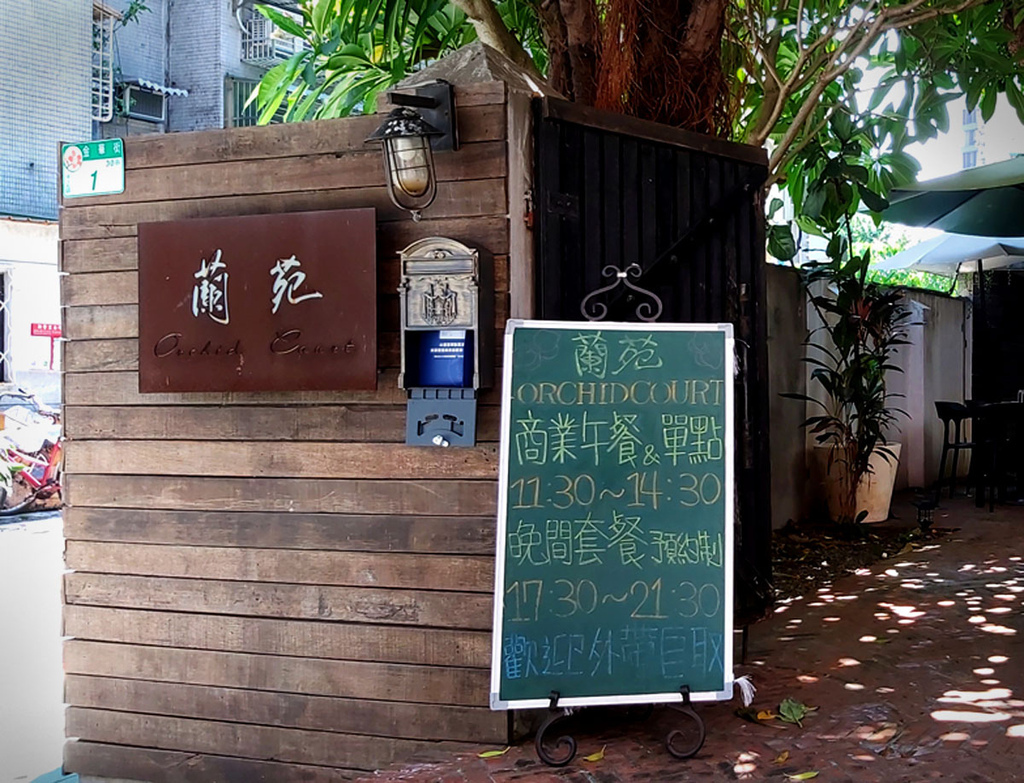 金華街
30巷
1
蘭苑
Orchid Court
蘭苑
ORCHIDCOURT
商業午餐&單點
11:30~14:30
晚間套餐 預約制
17:30~21:30
歡迎外帶自取